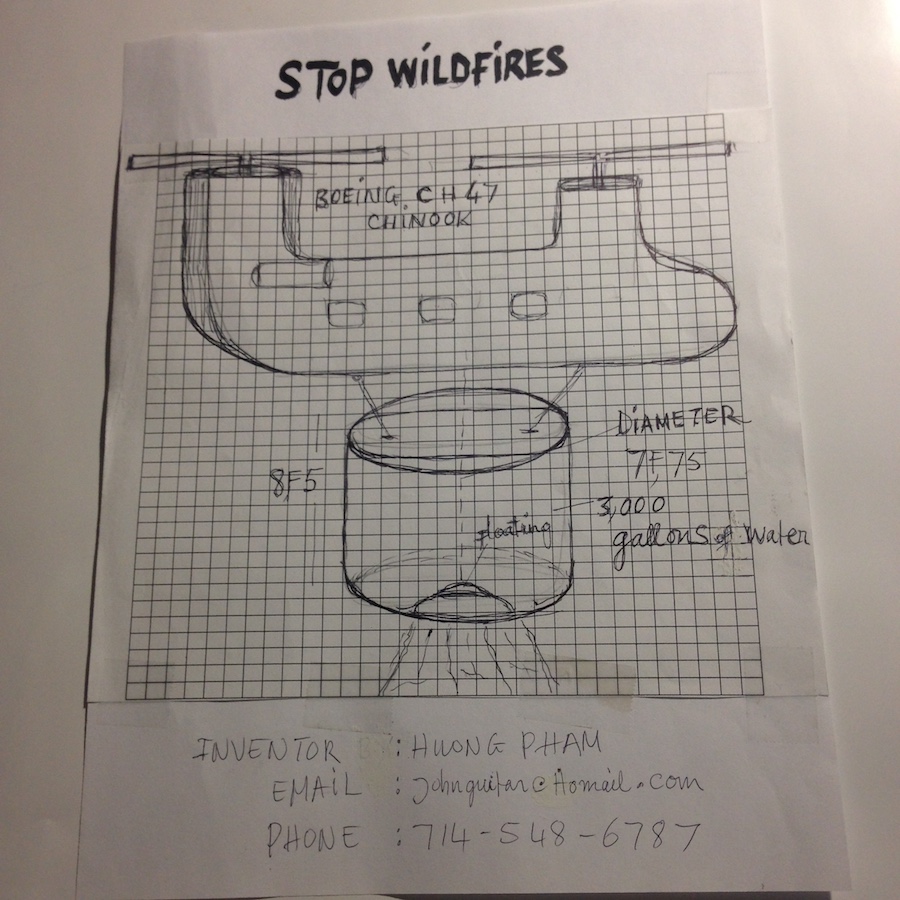 STOP WiLDFiRES
BOEiNG. CH47
CHiNOOK
DiAMETER
7F,75
8F5
3,000
floating
gallons of Water
INVENTOR : HUONG PHAM
EMAiL : johnguitar@Homail.com
PHONE : 714-548-6787